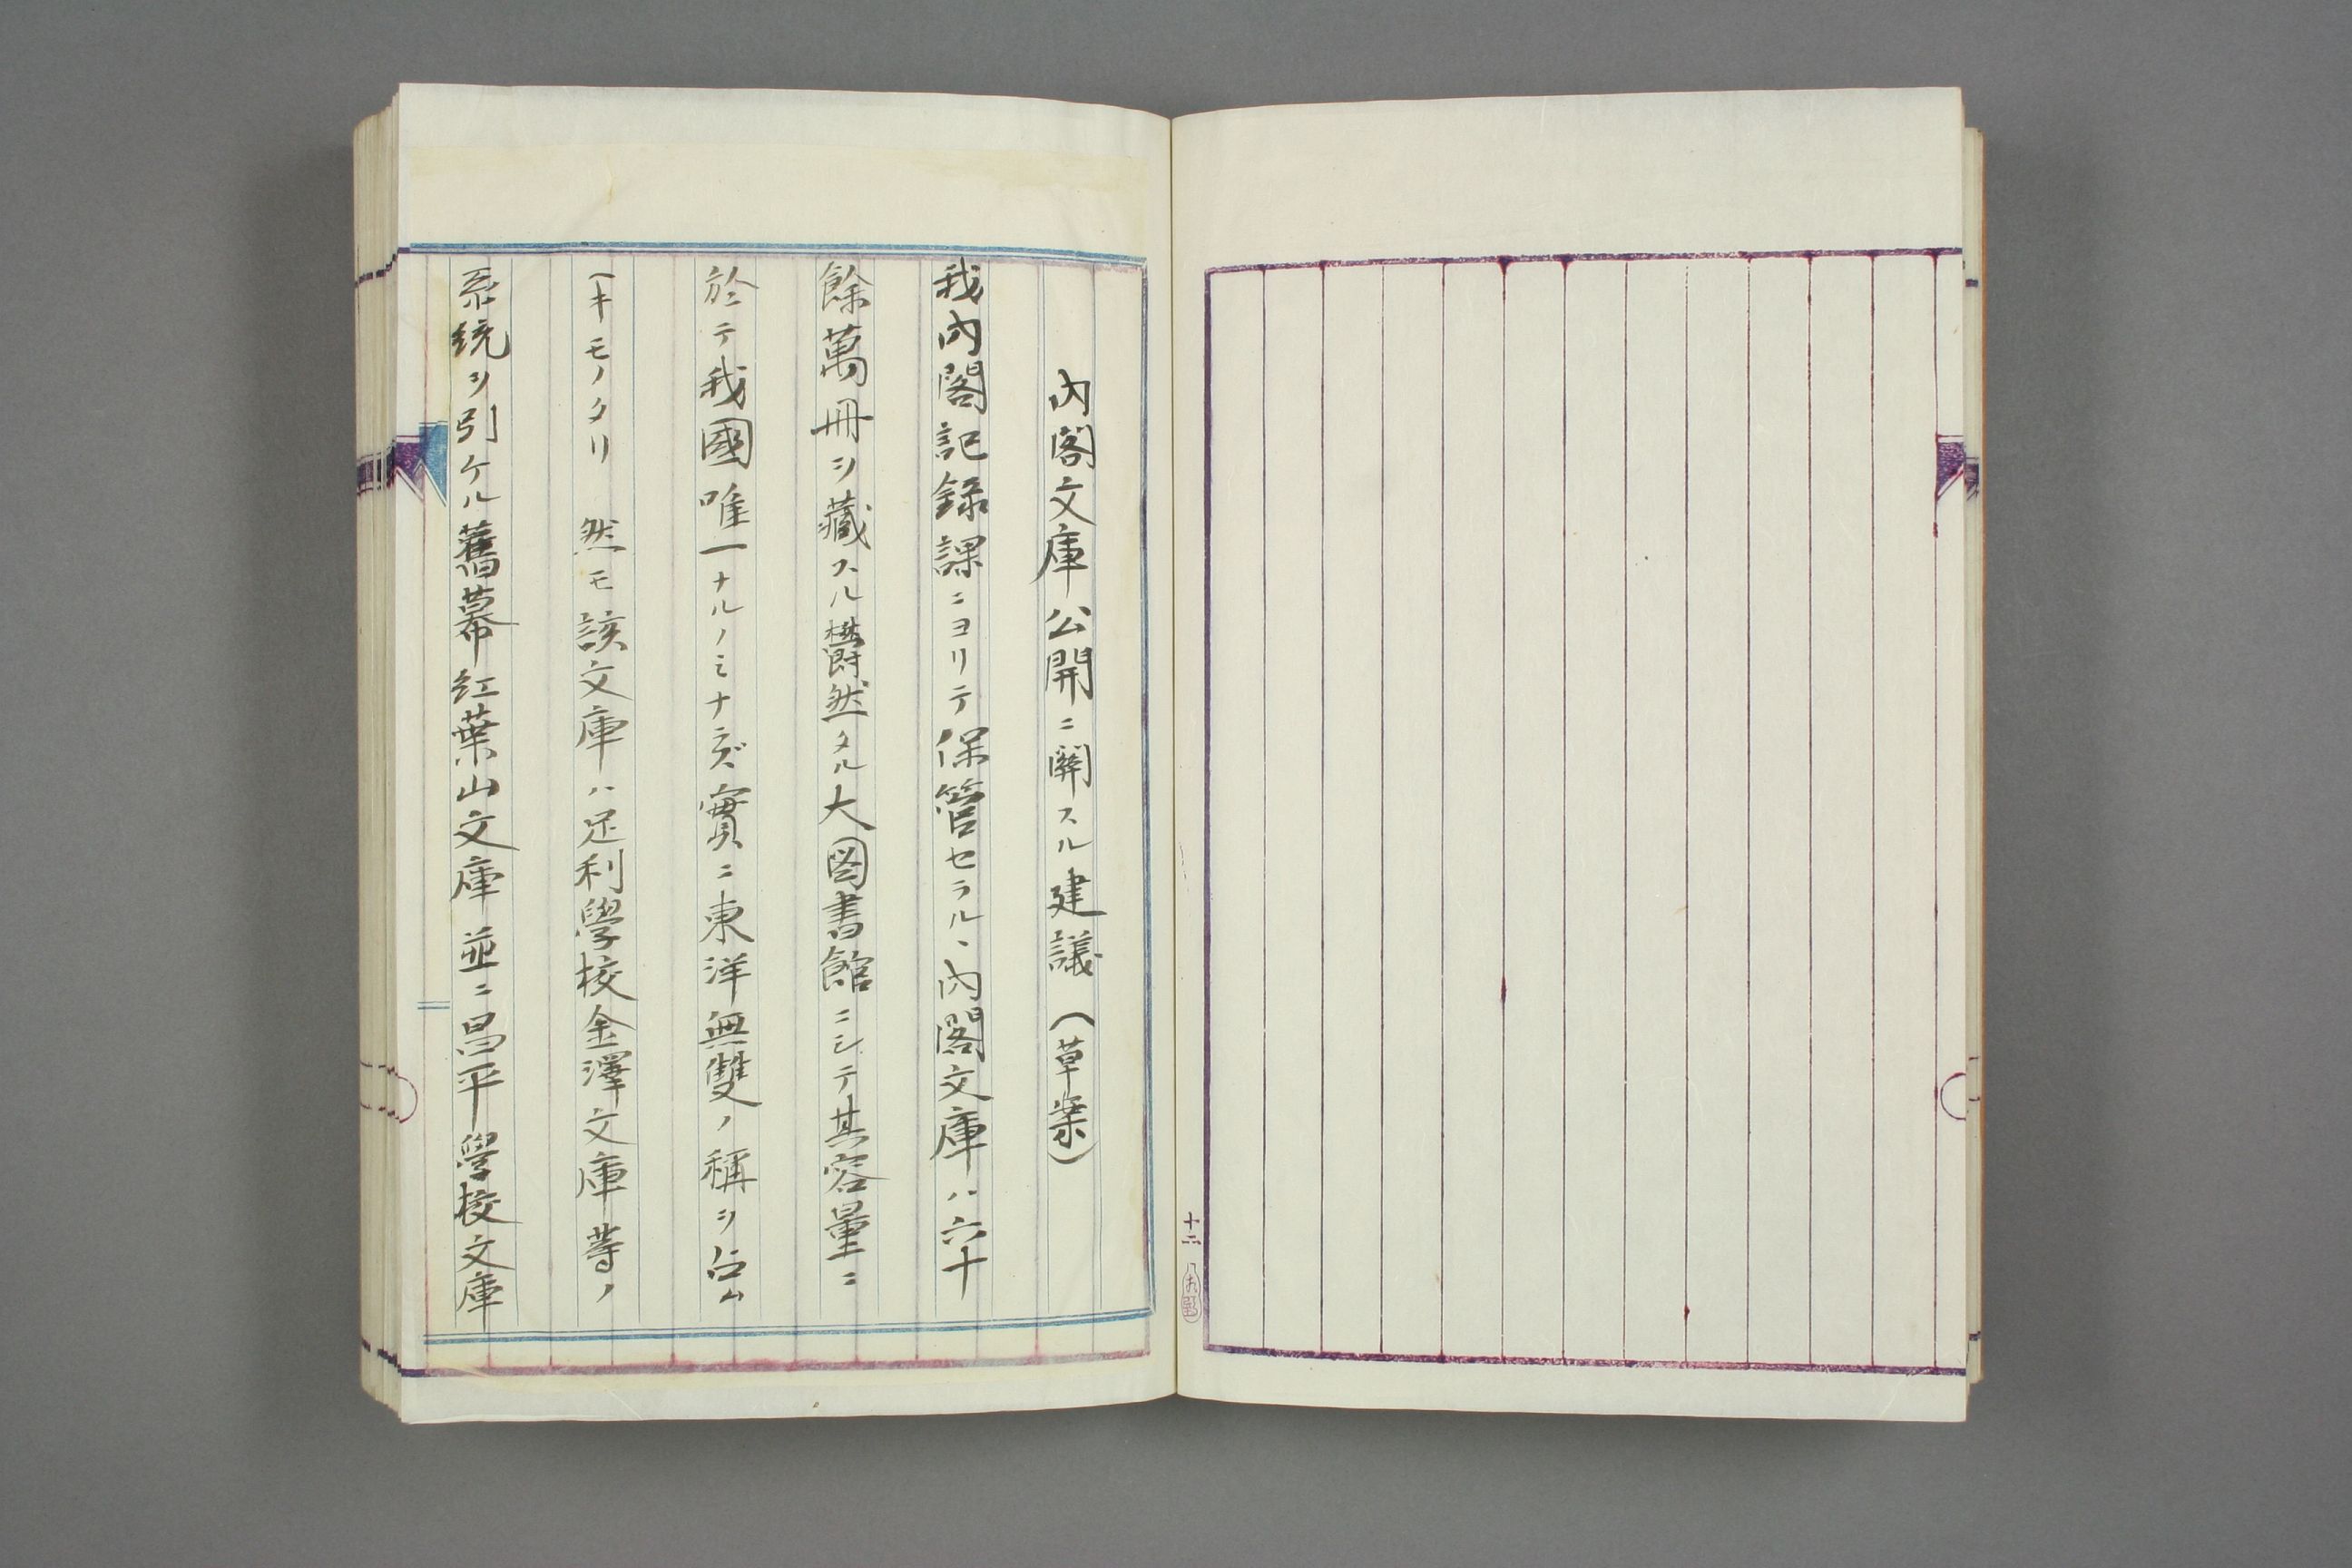 十二
内閣文庫公開ニ關スル建議（草案）
我内閣記録課ニヨリテ保管セラルヽ内閣文庫ハ六十
餘萬冊ヲ藏スル欝然タル大圖書館ニシテ其容量ニ
於テ我國唯一ナルノミナラズ實ニ東洋無雙ノ稱ヲ冠ム
ヘキモノタリ 然モ該文庫ハ足利學校金澤文庫等ノ
系統ヲ引ケル舊幕紅葉山文庫並ニ昌平學校文庫